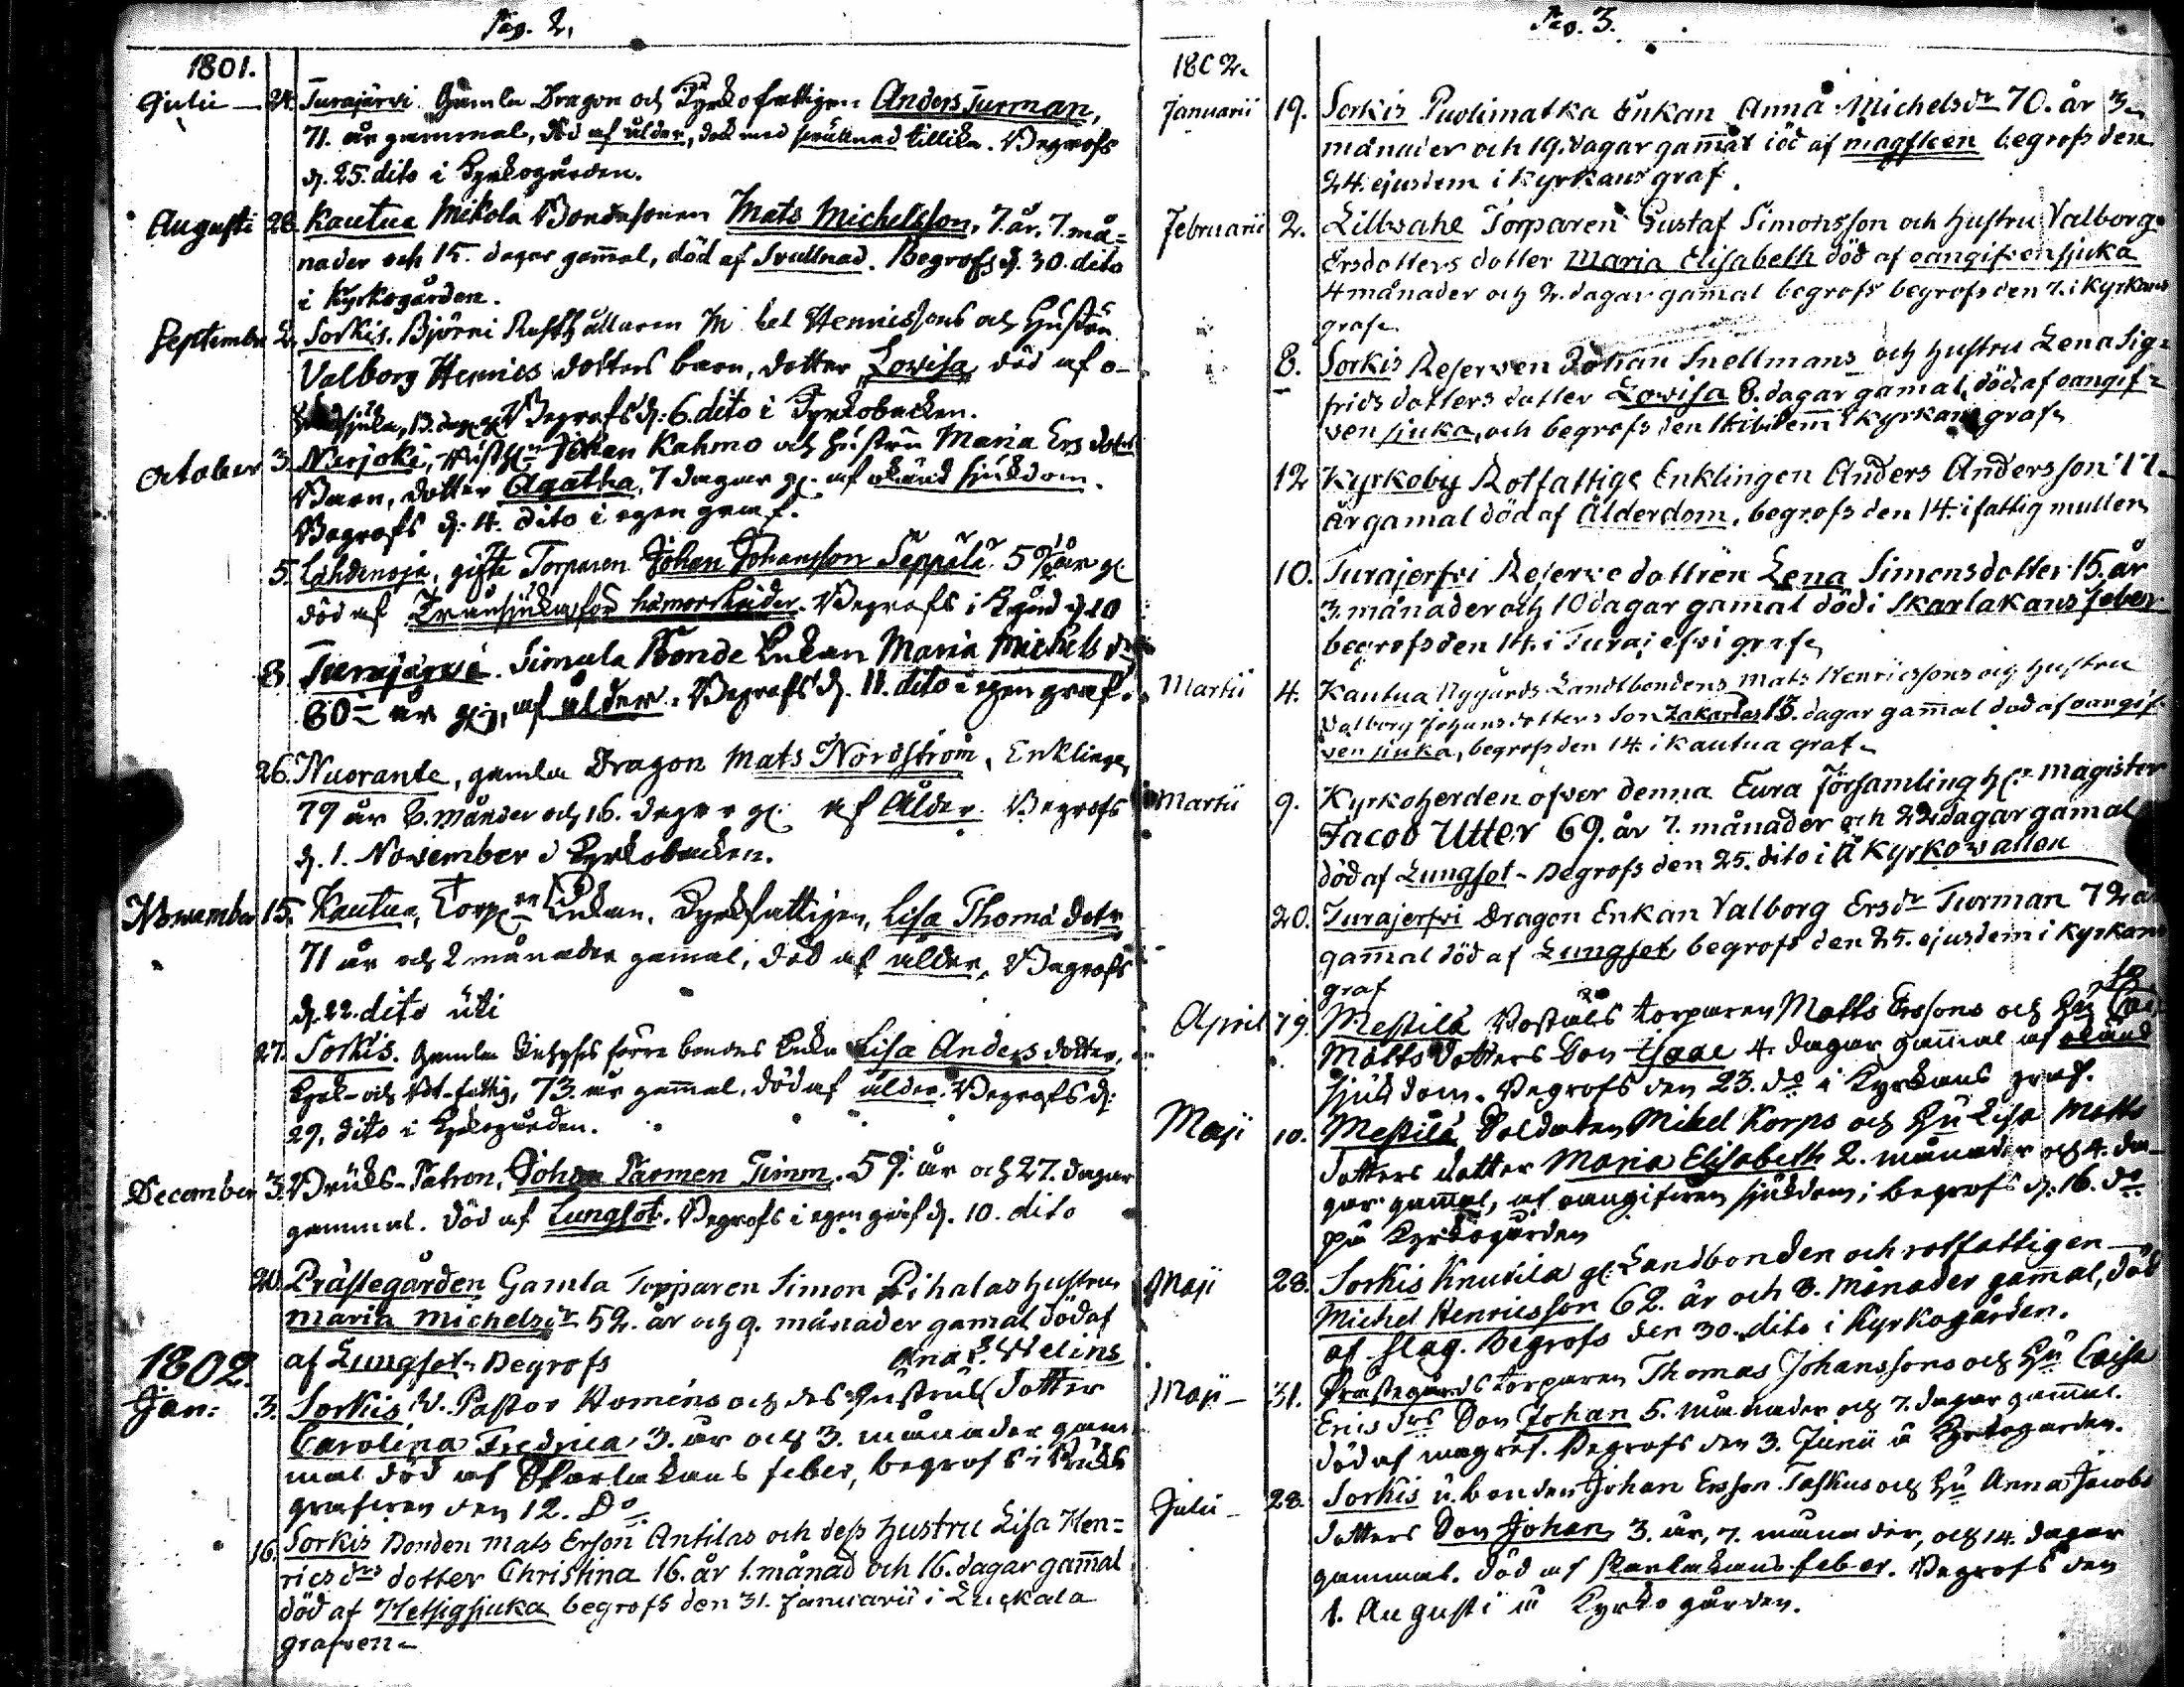 Pag. 2.
1801.
Julii 24. Turajärvi Gamla Dragon och Kyrkofattigen Anders Turman,
71. år gammal, död af ålder, dock med svullnad tillika. Begrofs
d. 25. dito i Kyrkogården.
Augusti 28. Kautua Mikola Bondesonen Mats Michelsson, 7. år, 7. må=
nader och 15. dagar gam̄al, död af Svullnad. Begrofs d. 30. dito
i Kyrkogården.
September 2. Sorkis. Björni Rusthållaren Henricssons och Hustru
Valborg Henrics dotters barn, dotter Lovisa, död af o-
sjuka, 13. dag. gl. Begrofs d. 6. dito i Kyrkobacken.
October 3. Nerjoki, Johan Kahmo och hustru Maria Ers dotts
Barn, dotter Agatha, 7 dagar gl. af okänd sjukdom.
Begrofs d. 4. dito i egen graf.
5. Lähdenoja, gifte Torparen Johan Johansson Seppälä 59 år gl.
död af Begrofs i d. 10
8. Turajärvi. Simula Bonde Enkan Maria Michels dr
80 år gl., af ålder. Begrofs d. 11. dito i egen graf.
26. Nuorante, gamla Dragon Mats Nordström, Enkling,
79 år 8. månder och 16. dagar gl. af Ålder. Begrofs
d. 1. November i Kyrkobacken.
November 15. Kautua, Torp. en Enkan, Kyrkfattigen, Lisa Thomä dotr
71 år och 2 månader gamal, död af ålder, Begrofs
d. 22. dito uti
27. Sorkis. Gamla förre bondes Enka Lisa Anders dotter,
Kyrk- och Rot-fattig, 73. år gam̄al, död af ålder. Begrofs d.
29. dito i Kyrkogården.
December 3. Bruks-Patron, Johan Parmen Timm. 59. år och 27. dagar
gammal. död af Lungsot. Begrofs i egen graf d. 10. dito
20. Prästegården Gamla Torparen Simon Pihalas hustru
Maria Michelsdr 52. år och 9. månader gamal död af
af Lungsot. Begrofs
Ana Welins
1802.
Jan: 3. Sorkis V. Pastor Homéns och des Hustrus dotter
Carolina Fredrica, 3. år och 3. månader gam
mal död af Skarlakans feber, begrofs i Bruks
grafven den 12. Do
16. Sorkis Bonden Mats Ersson Antilas och dess hustru Lisa Hen=
rics drs dotter Christina 16. år 1. månad och 16. dagar gam̄al
död af Hetsigsjuka begrofs den 31. Januarii i Luckala
grafven
Pag. 3.
1802.
Januarii 19. Sorkis Puolimatka Enkan Anna Michelsdr 70. år 3.
månader och 19. dagar gam̄al död af magsten begrofs den
24. ejusdem i Kyrkans graf.
Februarii 2. Lillwahe Torparen Gustaf Simonsson och hustru Valborg
Ersdotters dotter Maria Elisabeth död af oangifven sjuka
4 månader och 2. dagar gamal begrofs begrofs den 7. i Kyrkans
graf
8. Sorkis Reserven Johan Snellmans och hustru Lena Sig=
frids dotters dotter Lovisa 8. dagar gamal, död af oangif=
ven sjuka, och begrofs den 14 ibidem i kyrkans graf
12 Kyrkoby Rotfattige Enklingen Anders Andersson 77
År gamal död af Ålderdom, begrofs den 14. i fattig mullen
10. Turajerfvi Reserve dottren Lena Simonsdotter 15. år
3. månader och 10 dagar gamal död i Skarlakans feber
begrofs den 14. i Turajerfvi graf
Martii 4. Kautua Nygårds Landtbondens Mats Henricssons och hustru
Valborg Johans dotters Son Zakarias 13. dagar gam̄al död af oangif=
ven sjuka, begrofs den 14. i Kautua graf
Martii 9. Kyrkoherden öfver denna Eura Församling Hr Magister
Jacob Utter 69. år 7. månader och 22 dagar gamal
död af Lungsot. Begrofs den 25. dito i Å Kyrkovallen
20. Turajerfvi Dragon Enkan Valborg Ersdr Turman 72 år
gam̄al död af Lungsot begrofs den 25. ejusdem i Kyrkans
graf
April 19. Mestilä torparen Matts Erssons och Hu Cai sa
Matts dotters Son Isaac 4. dagar gam̄al af okänd
sjukdom. Begrofs den 23. do i Kyrkans graf.
Maji 10. Mestilä Soldaten Mikel Korps och Hu Lisa Matts
dotters dotter Maria Elisabeth 2. månader och 4. da-
gar gam̄al, af oangifven sjukdom; begrofs d. 16. do
på Kyrkogården
Maji 28. Sorkis Knuutila gl. Landbonden och rotfattigen
Michel Henricsson 62. år och 8. månader gam̄al, död
af slag. Begrofs den 30. dito i Kyrkogården.
Maji 31. Prästegårds torparen Thomas Johanssons och Hu Caisa
Erics drs Son Johan 5. månader och 7. dagar gam̄al.
död af magref. Begrofs den 3. Junii å Kyrkogården.
Julii 28. Sorkis u. bonden Johan Ersson Taskus och Hu Anna Jacobs
dotters Son Johan, 3. år, 7. månader, och 14. dagar
gammal. död af Skarlakans feber. Begrofs den
1. Augusti å Kyrko gården.